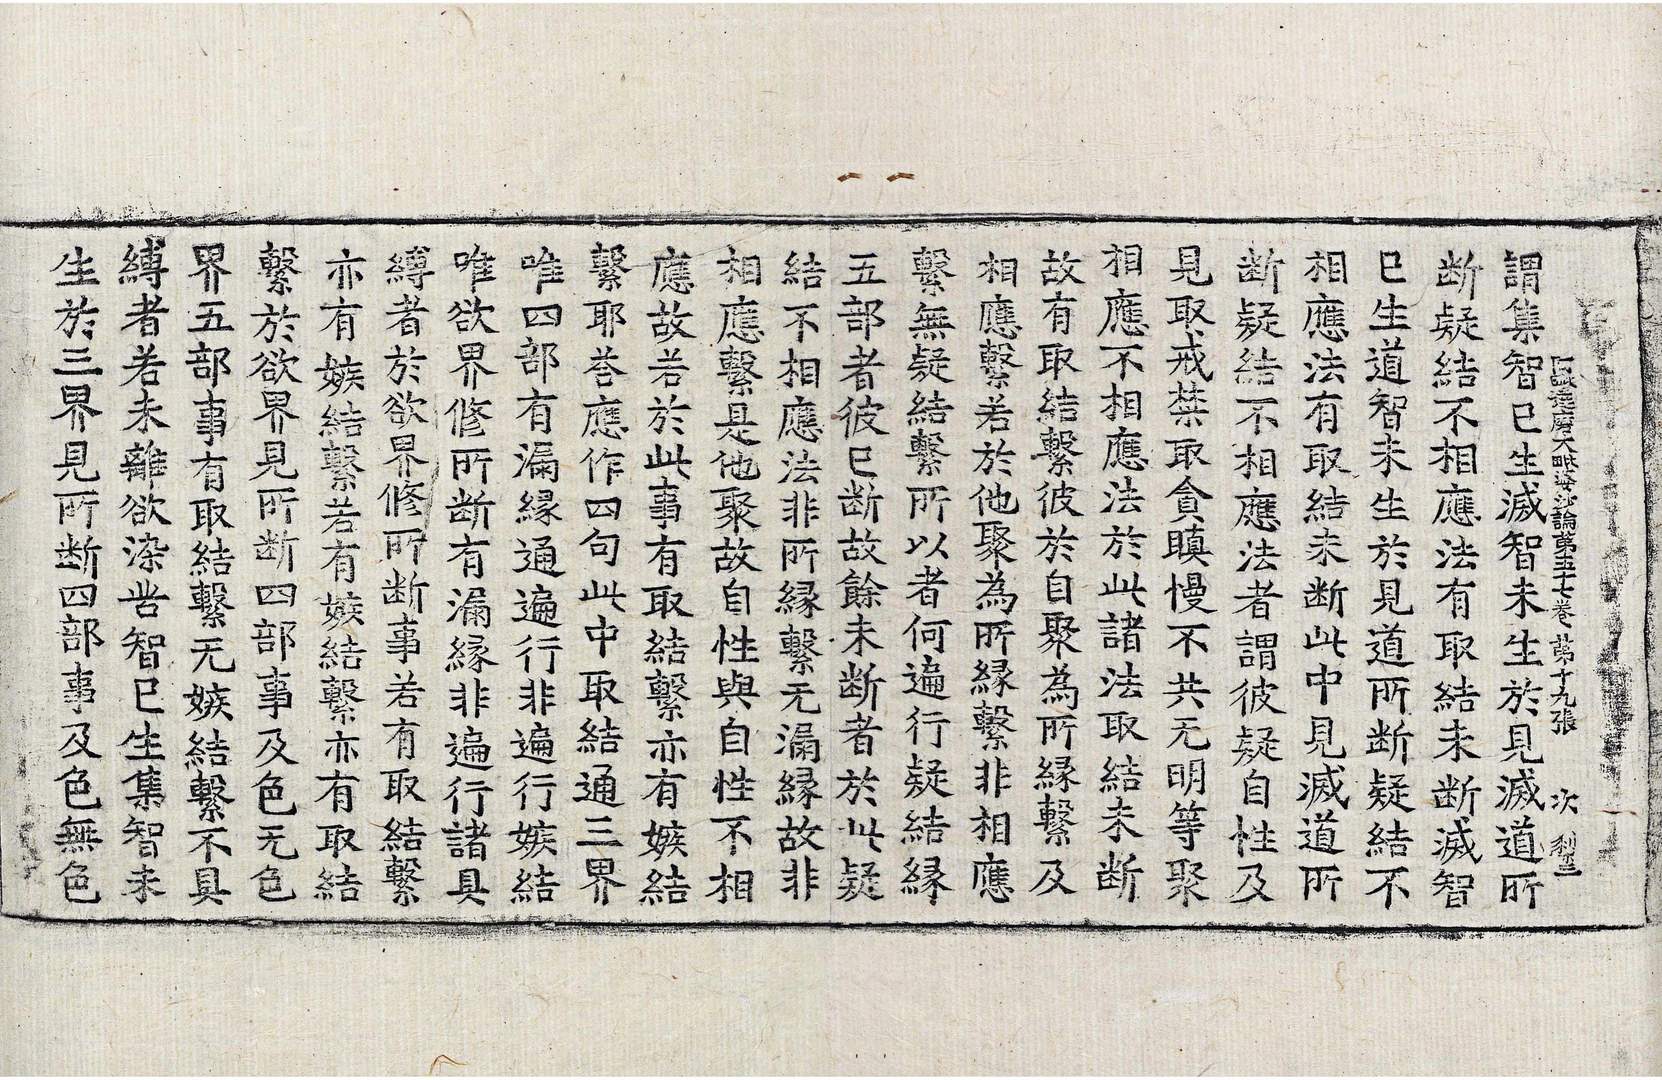 謂集智已生滅智未生於見滅道所
断疑結不相應法有取結未断滅智
已生道智未生於見道所断疑結不
相應法有取結未断此中見滅道所
断疑結不相應法者謂彼疑自性及
見取戒禁取貪瞋慢不共无明等聚
相應不相應法於此諸法取結未断
故有取結繫彼於自聚為所縁繫及
相應繫若於他聚為所縁繫非相應
繫無疑結繫所以者何遍行疑結縁
五部者彼已断故餘未断者於此疑
結不相應法非所縁繫无漏縁故非
相應繫是他聚故自性與自性不相
應故若於此事有取結繫亦有嫉結
繫耶荅應作四句此中取結通三界
唯四部有漏縁通遍行非遍行嫉結
唯欲界修所断有漏縁非遍行諸具
縛者於欲界修所断事若有取結繫
亦有嫉結繫若有嫉結繫亦有取結
繫於欲界見所断四部事及色无色
界五部事有取結繫无嫉結繫不具
縛者若未離欲染苦智已生集智未
生於三界見所断四部事及色無色
達磨大毗婆沙論第五十七卷 第十九張 次